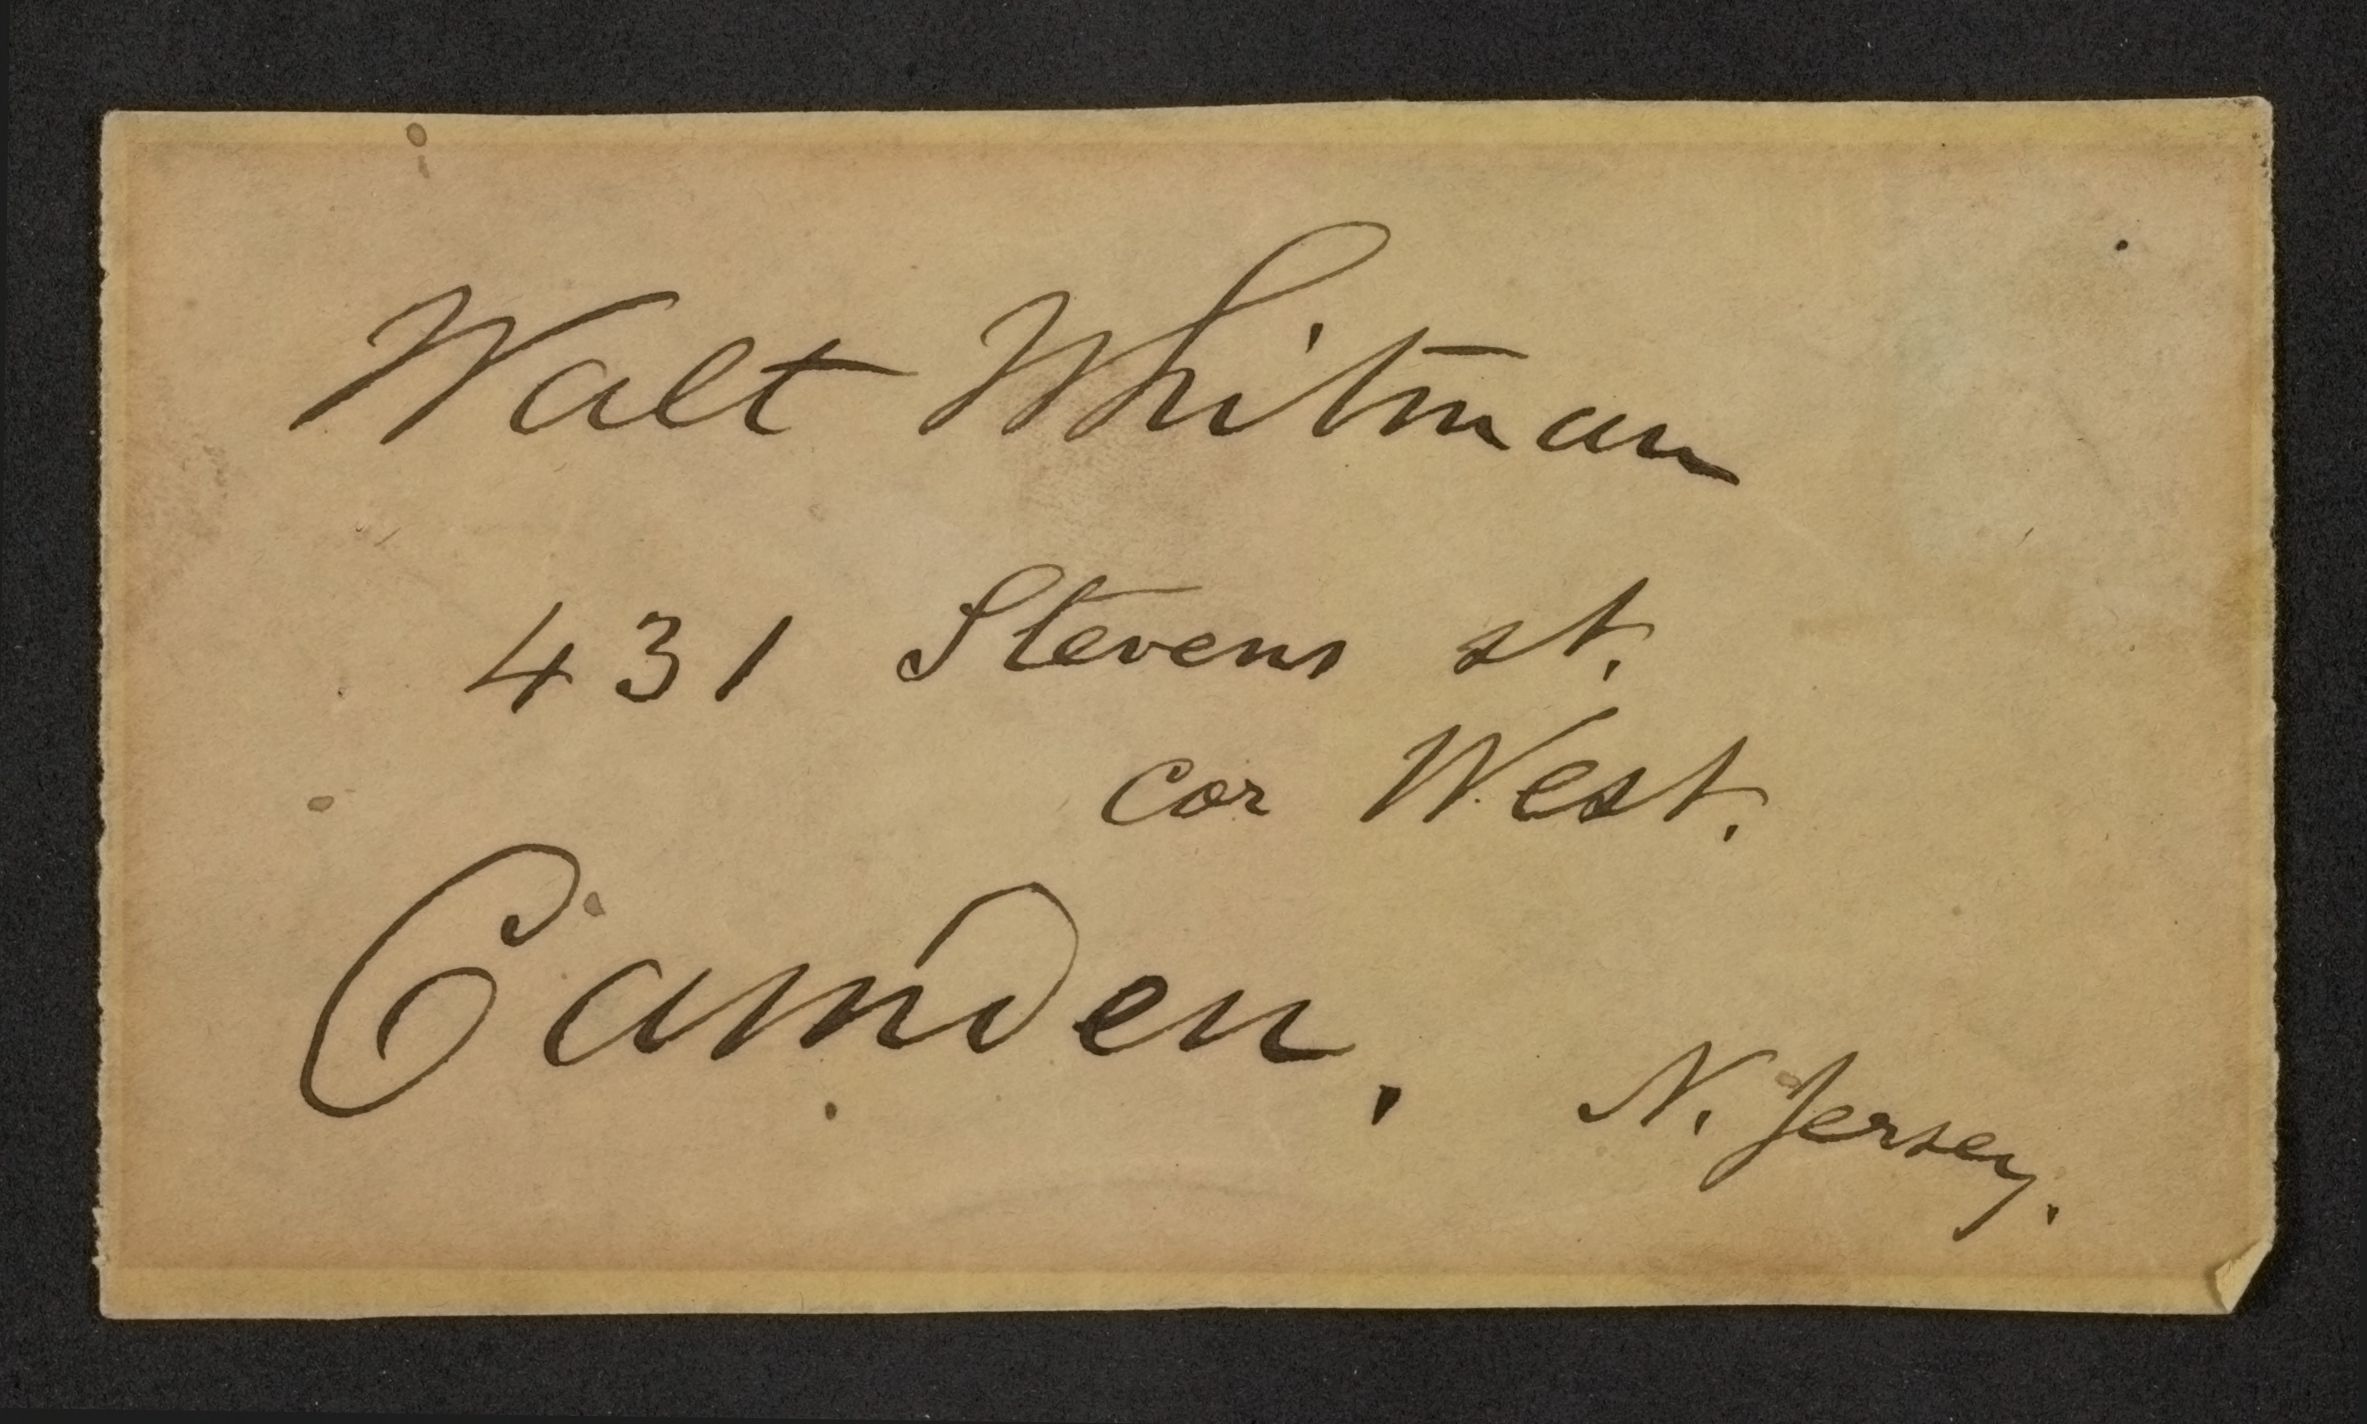 Walt Whitman
431 Stevens st.
cor West.
Camden,
N. Jersey.